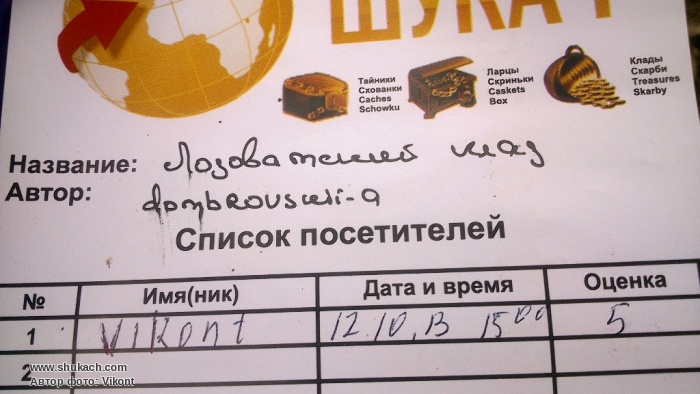 ШУКАЧ
Тайники
Схованки
Caches
Schowku
Ларцы
Скриньки
Caskets
Box
Клады
Скарби
Treasures
Skarby
Название: Лозоватский клад
Автор: dombrovskii-a
Список посетителей
№ Имя(ник) Дата и время Оценка
1 Vikont 12.10.13 15 00 5
2
www.shukach.com
Автор фото: Vikont